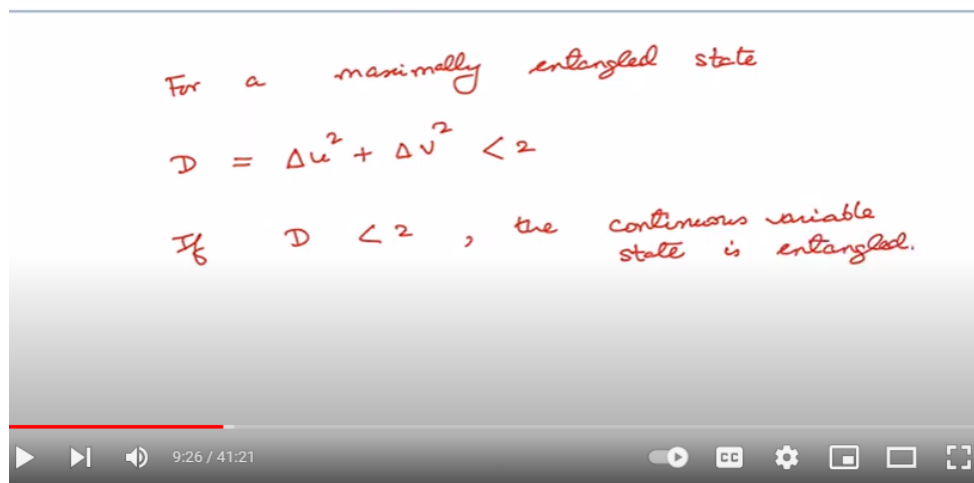 For a maximally entangled state
D = Δu² + Δv² < 2
If D < 2 , the continuous variable
state is entangled.
9:26 / 41:21
CC